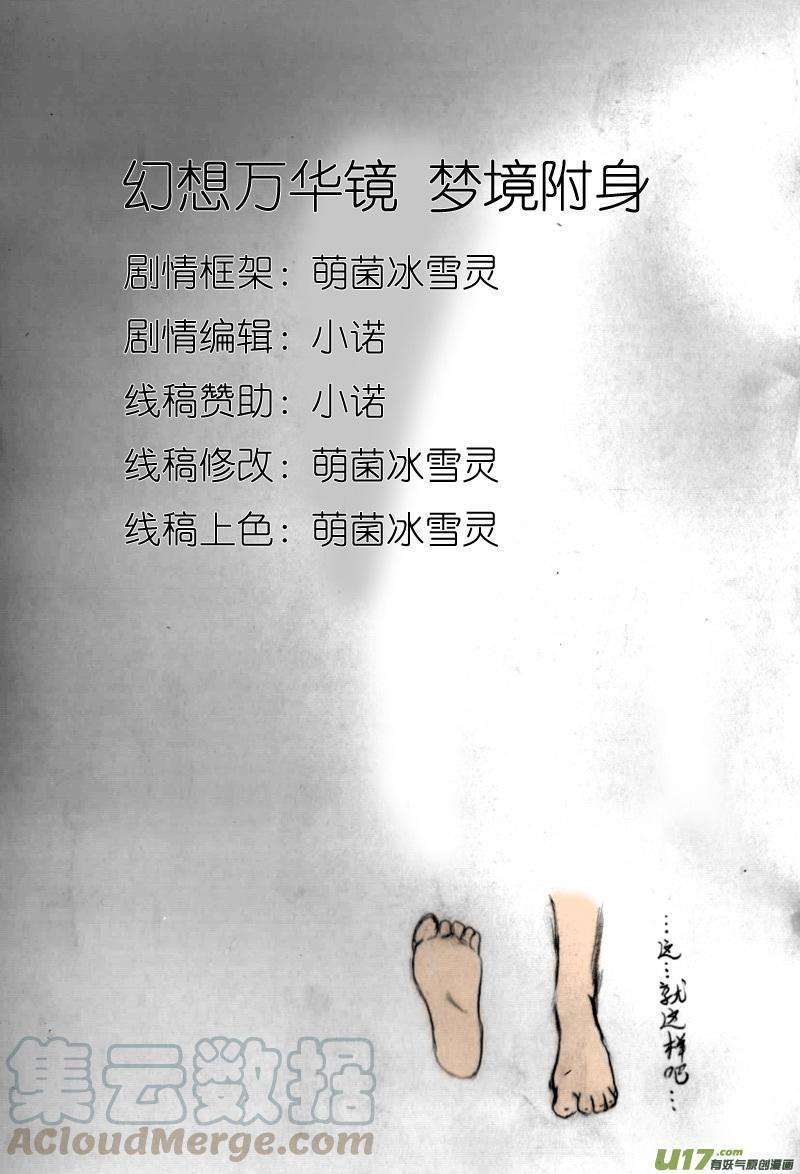 幻想万华镜 梦境附身
剧情框架：萌菌冰雪灵
剧情编辑：小诺
线稿赞助：小诺
线稿修改：萌菌冰雪灵
线稿上色：萌菌冰雪灵
…这…就这样吧…
集云数据
ACloudMerge.com
U17.com
有妖气原创漫画